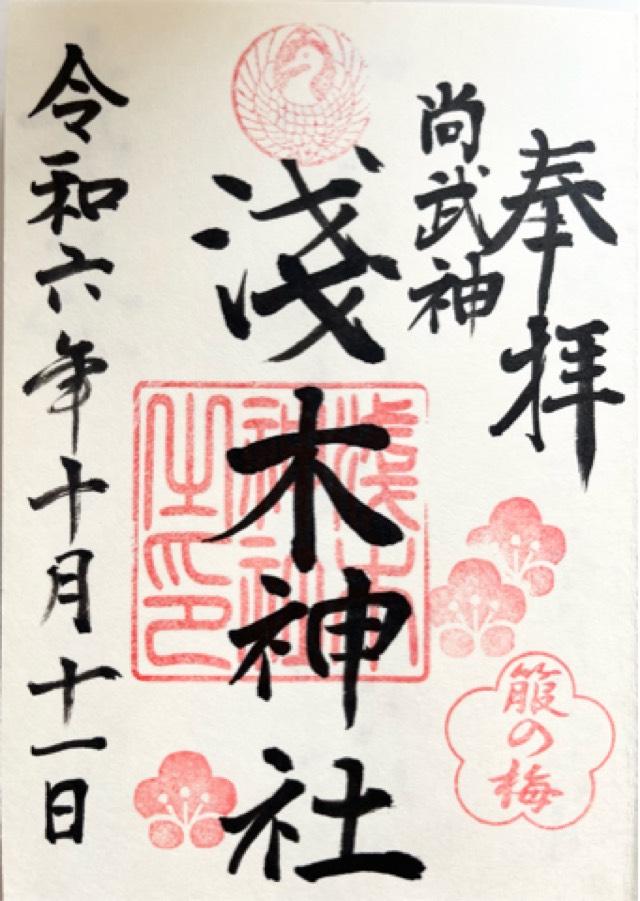 奉拝
尚武神
淺木神社
令和六年十月十一日
淺木神社之印
箙の梅